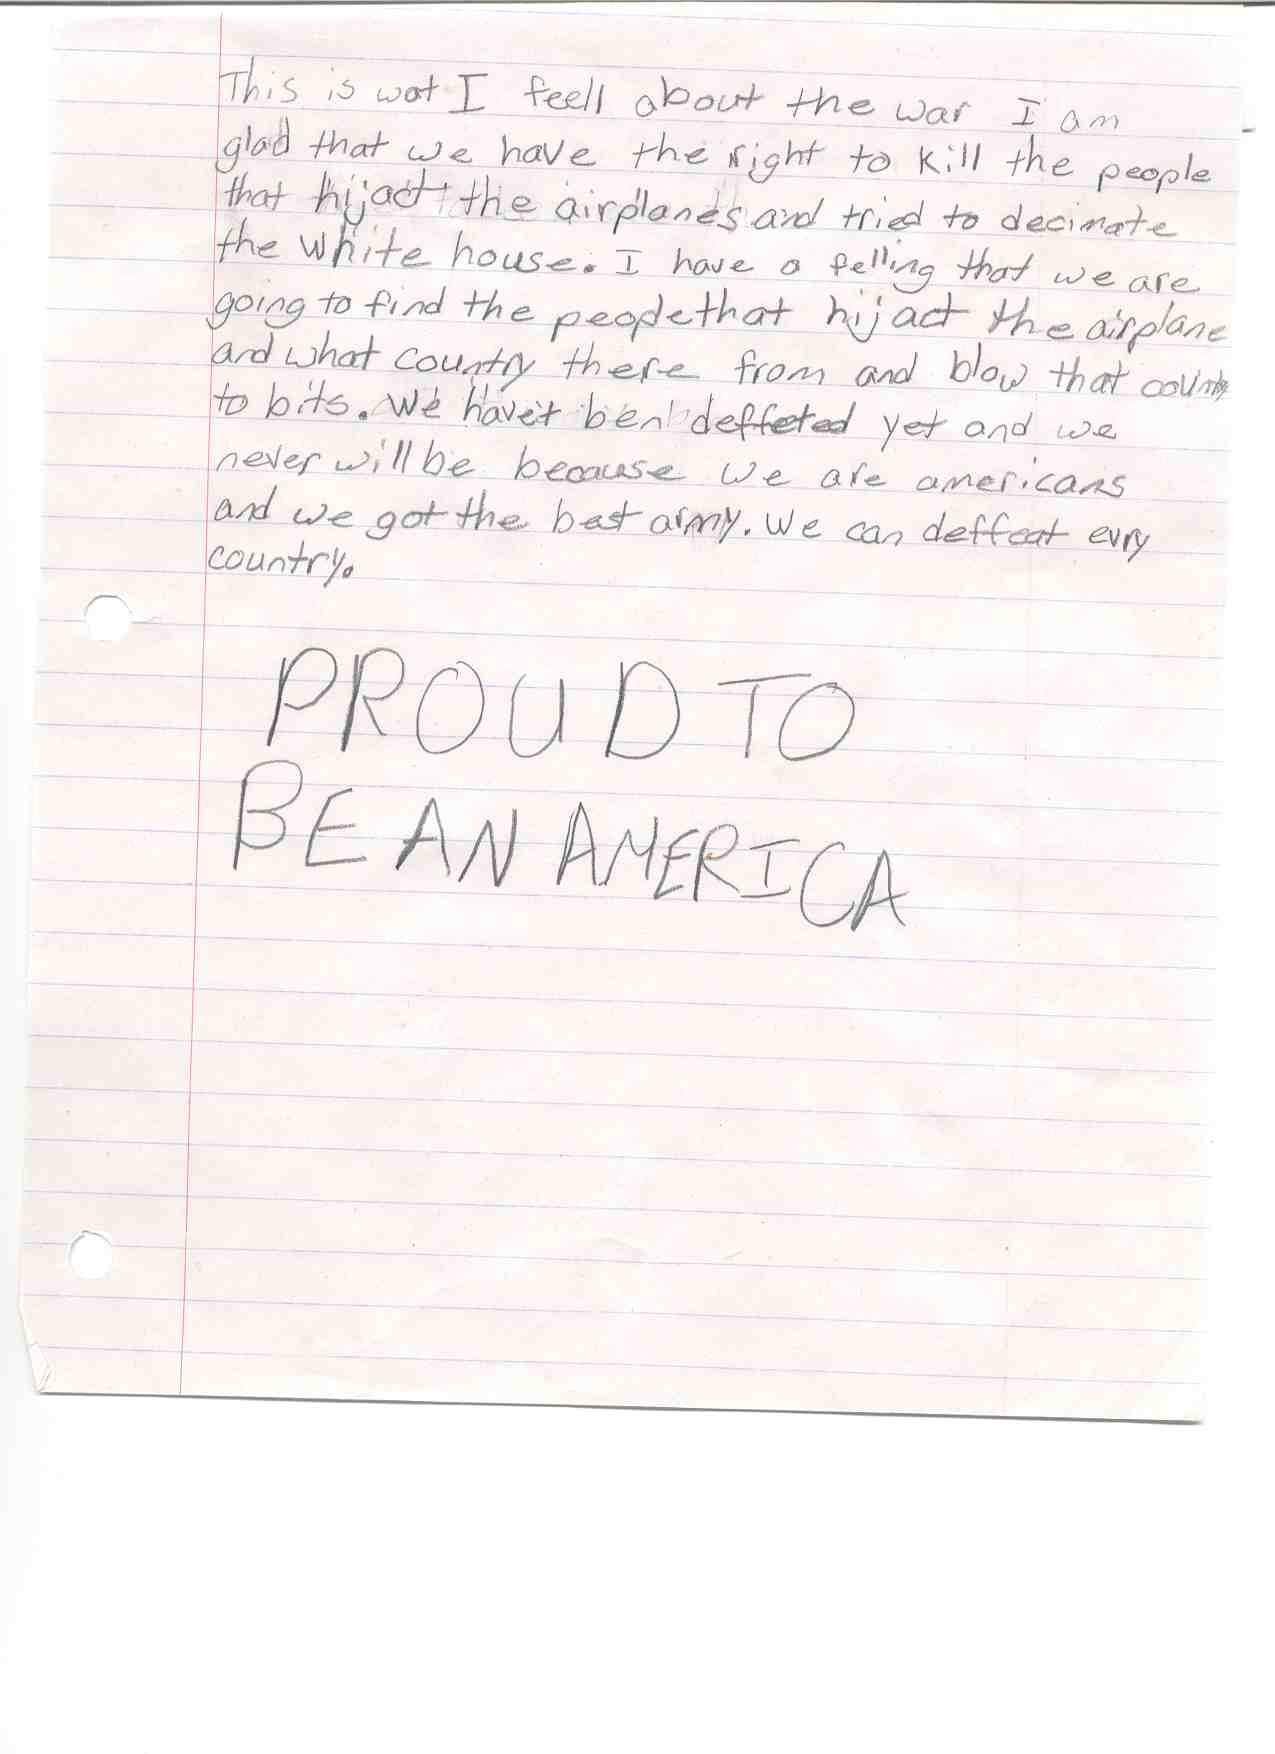 This is wot I feell about the war I am
glad that we have the right to kill the people
that hijact the airplanes and tried to decimate
the white house. I have a felling that we are
going to find the peope that hijact the airplane
and what country there from and blow that country
to bits. We havet ben deffeted yet and we
never will be because we are americans
and we got the best army. We can deffeat evry
country.
PROUD TO
BE AN AMERICA